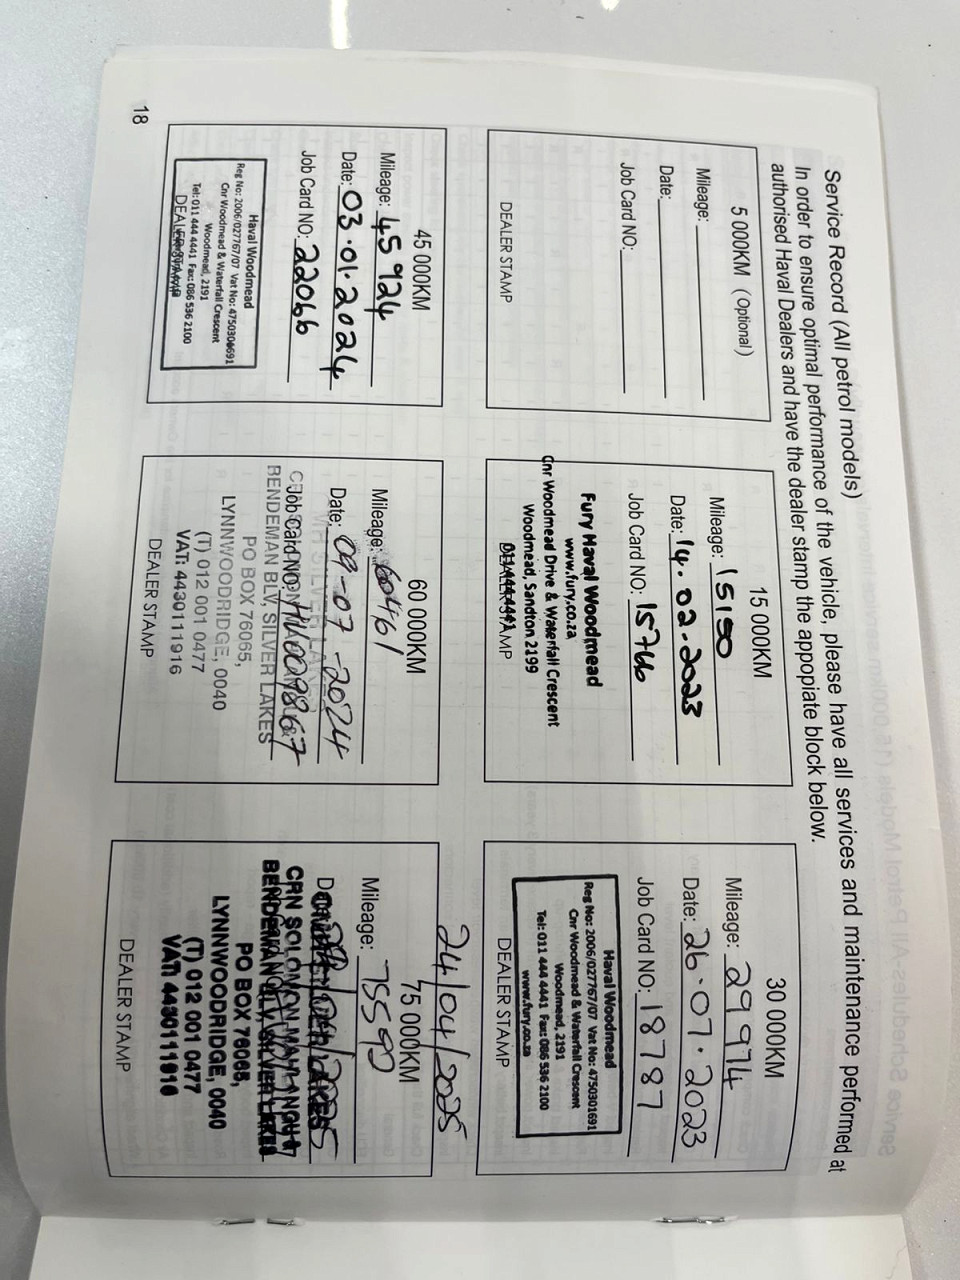 Service Record (All petrol models)
In order to ensure optimal performance of the vehicle, please have all services and maintenance performed at
authorised Haval Dealers and have the dealer stamp the appopiate block below.
5 000KM (Optional)
Mileage:
Date:
Job Card NO:
DEALER STAMP
15 000KM
Mileage: 15150
Date: 14.02.2023
Job Card NO: 15766
Fury Haval Woodmead
www.fury.co.za
Cnr Woodmead Drive & Waterfall Crescent
Woodmead, Sandton 2199
011 444 4441
DEALER STAMP
30 000KM
Mileage: 29974
Date: 26.07.2023
Job Card NO: 18787
Haval Woodmead
Reg No: 2006/027767/07 Vat No: 4750301691
Cnr Woodmead & Waterfall Crescent
Woodmead, 2191
Tel: 011 444 4441 Fax: 086 536 2100
www.fury.co.za
DEALER STAMP
45 000KM
Mileage: 45924
Date: 03.01.2024
Job Card NO: 22066
Haval Woodmead
Reg No: 2006/027767/07 Vat No:
Cnr Woodmead & Waterfall Crescent
Woodmead, 2191
Tel: 011 444 4441 Fax: 086 536 2100
DEALER STAMP
60 000KM
Mileage: 60461
Date: 09-07-2024
Job Card NO:
BENDEMAN BLV, SILVER LAKES
PO BOX 76065,
LYNNWOODRIDGE, 0040
(T) 012 001 0477
VAT: 4430111916
DEALER STAMP
24/04/2025
75 000KM
Mileage: 75592
CRN SOLOMON
BENDEMAN
PO BOX 76065,
LYNNWOODRIDGE, 0040
(T) 012 001 0477
VAT: 4430111916
DEALER STAMP
18